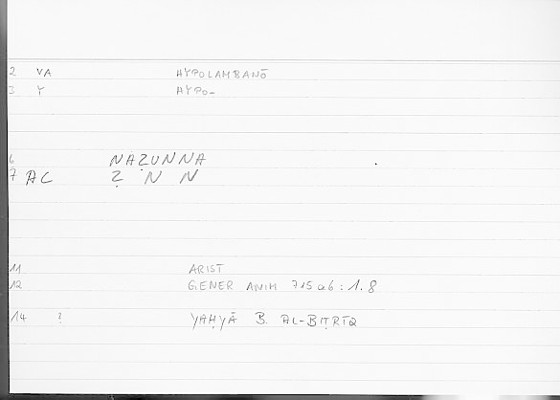 2 VA HYPOLAMBANŌ
3 Y HYPO-
6 NAẒUNNA
7 AC Ẓ N N
11 ARIST
12 GENER ANIM 715 a6 : 1.8
14 ? YAḤYĀ B. AL-BIṬRĪQ